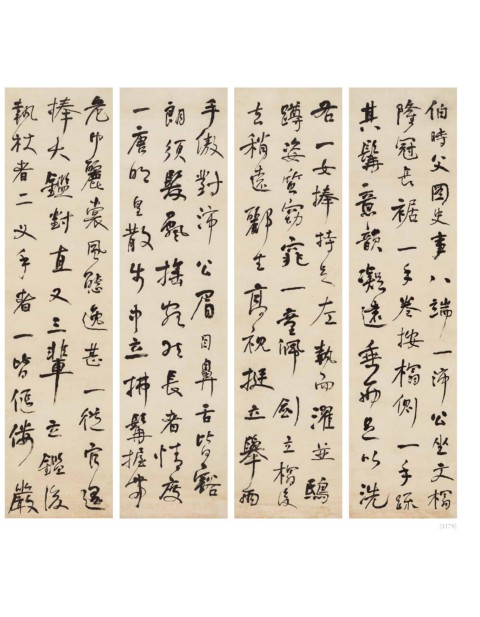 伯時父圖史事八端一沛公坐文榻
隆冠長裾一手卷按榻側一手疏
其髯意韻凝遠垂兩足以洗
右一女捧持之左執而濯並鴟
蹲姿質窈窕一童佩劍立榻後
去稍遠酈生高視挺立舉兩
手傲對沛公眉目鼻舌皆豁
朗須髮飄搖宛然長者情度
一唐明皇散步中立拂髯握帶
危巾麗裳風態逸甚一從官遙
捧大鑑對直又三輩立鑑後
執杖者二叉手者一皆傴僂嚴
[1179]